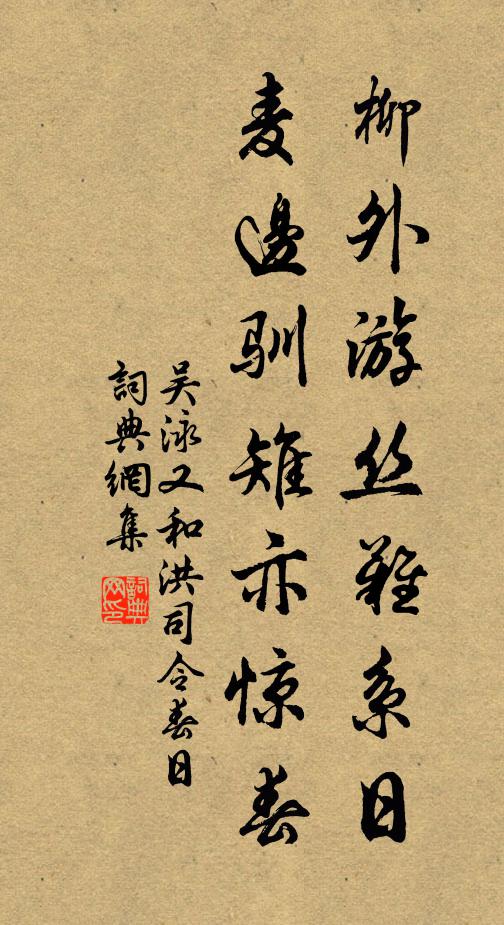 柳外游丝難系日
麦邊驯雉亦惊春
吴泳又和洪司令春日
詞典網集
詞典網印